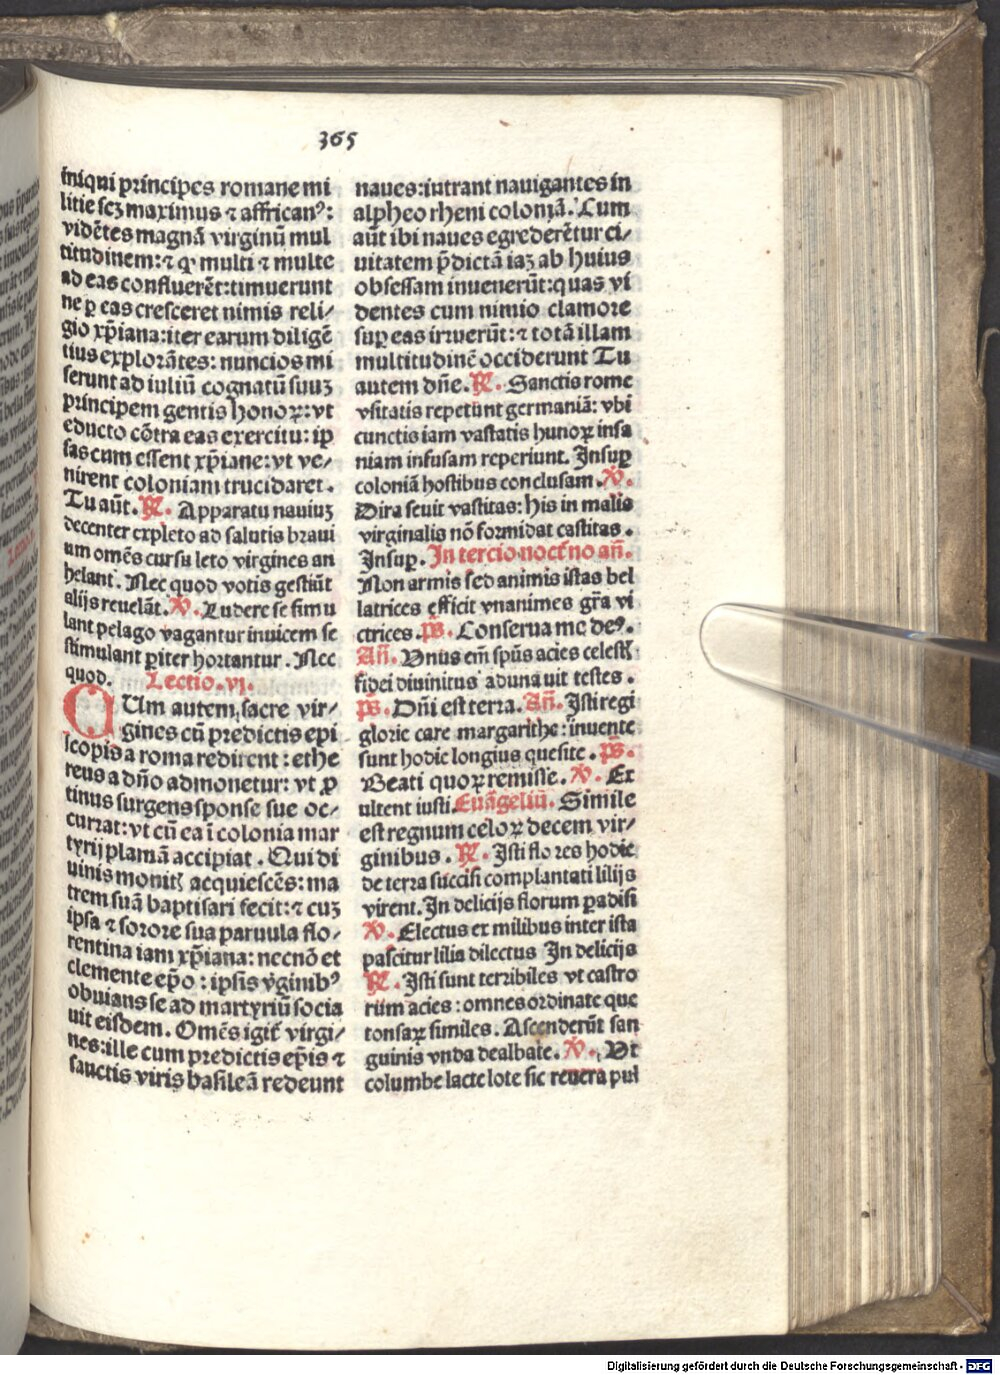 365
iniqui principes romane mi
litie scꝫ maximus ⁊ affrican⁹:
vidētes magnā virginū mul
titudinem:⁊ qꝫ multi ⁊ multe
ad eas confluerēt:timuerunt
ne ꝑ eas cresceret nimis reli-
gio xp̄iana:iter earum diligē
tius explorātes: nuncios mi
serunt ad iuliū cognatū suuꝫ
principem gentis honoꝝ:vt
educto cōtra eas exercitu: ip
sas cum essent xp̄iane:vt ve-
nirent coloniam trucidaret.
Tu aūt. ℟. Apparatu nauiuꝫ
decenter expleto ad salutis braui
um omēs cursu leto virgines an
helant. Nec quod votis gestiūt
alijs reuelāt. ℣. Ludere se simu
lant pelago vagantur inuicem se
stimulant ꝑiter hortantur. Nec
quod. Lectio.vi.
CUm autem sacre vir-
gines cū predictis epi
scopis a roma redirent: ethe
reus a dn̄o admonetur: vt ꝓ
tinus surgens sponse sue oc-
currat:vt cū ea ī colonia mar
tyrij plamā accipiat. Qui di
uinis monitꝭ acquiescēs: ma
trem suā baptisari fecit:⁊ cuꝫ
ipsa ⁊ sorore sua paruula flo-
rentina iam xp̄iana: necnō et
clemente ep̄o: ipsis v̄ginibꝰ
obuians se ad martyriū socia
uit eisdem. Omēs igit᷑ virgi-
nes:ille cum predictis ep̄is ⁊
sanctis viris basileā redeunt
naues:intrant nauigantes in
alpheo rheni coloniā. Cum
aūt ibi naues egrederētur ci-
uitatem p̄dictā iaꝫ ab huius
obsessam inuenerūt:quas vi
dentes cum nimio clamore
suꝑ eas irruerūt:⁊ totā illam
multitudinē occiderunt Tu
autem dn̄e. ℟. Sanctis rome
vsitatis repetūnt germaniā: vbi
cunctis iam vastatis hunoꝝ insa
niam infusam reperiunt. Insuꝑ
coloniā hostibus conclusam. ℣.
Dira seuit vastitas: his in malis
virginalis nō formidat castitas.
Insuꝑ. In tercio nocťno an̄.
Non armis sed animis istas bel
latrices efficit vnanimes gr̄a vi
ctrices. ps̄. Conserua me deꝰ.
An̄. Vnus em̄ sp̄us acies celestꝭ
fidei diuinitus adunauit testes.
ps̄. Dn̄i est terra. An̄. Isti regi
glorie care margarithe: inuente
sunt hodie longius quesite. ps̄.
Beati quoꝝ remisse. ℣. Ex
ultent iusti. Euāgeliū. Simile
est regnum celoꝝ decem vir-
ginibus. ℟. Isti flores hodie
de terra succisi complantati lilijs
virent. In delicijs florum ꝑadisi
℣. Electus ex milibus inter ista
pascitur lilia dilectus In delicijs
℟. Isti sunt terribiles vt castro
rum acies: omnes ordinate que
tonsaꝝ similes. Ascenderūt san
guinis vnda dealbate. ℣. Vt
columbe lacte lote sic reuera pul
Digitalisierung gefördert durch die Deutsche Forschungsgemeinschaft - DFG